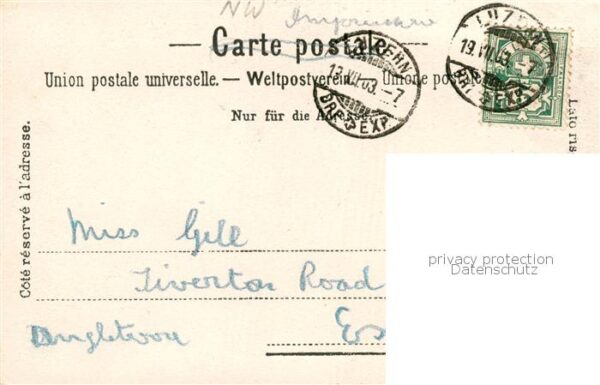 NW
— Carte postale —
Union postale universelle. — Weltpostverein. — Unione postale
Nur für die Adresse
LUZERN
19.VII.03.–7
BRF. EXP.
LUZERN
19.VII.03
BRF. EXP.
Côté réservé à l'adresse.
Lato ris
Miss Gill
Tiverton Road
Es
privacy protection
Datenschutz